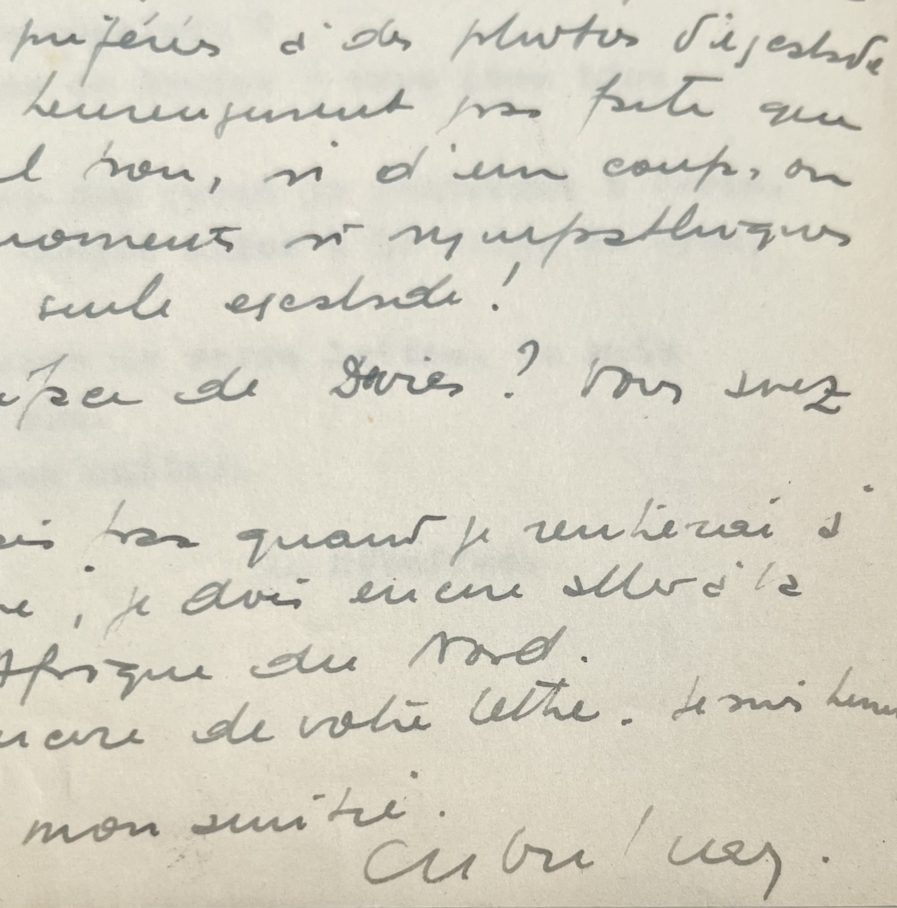 préférés à des photos d'escalade
heureusement pas faite que
l non, si d'un coup, on
moments si sympathiques
seule escalade !
de Davies ? Vous avez
sais pas quand je rentrerai à
; je dois encore aller à la
Afrique du Nord.
encore de votre lettre. Je suis heureu
mon amitié.